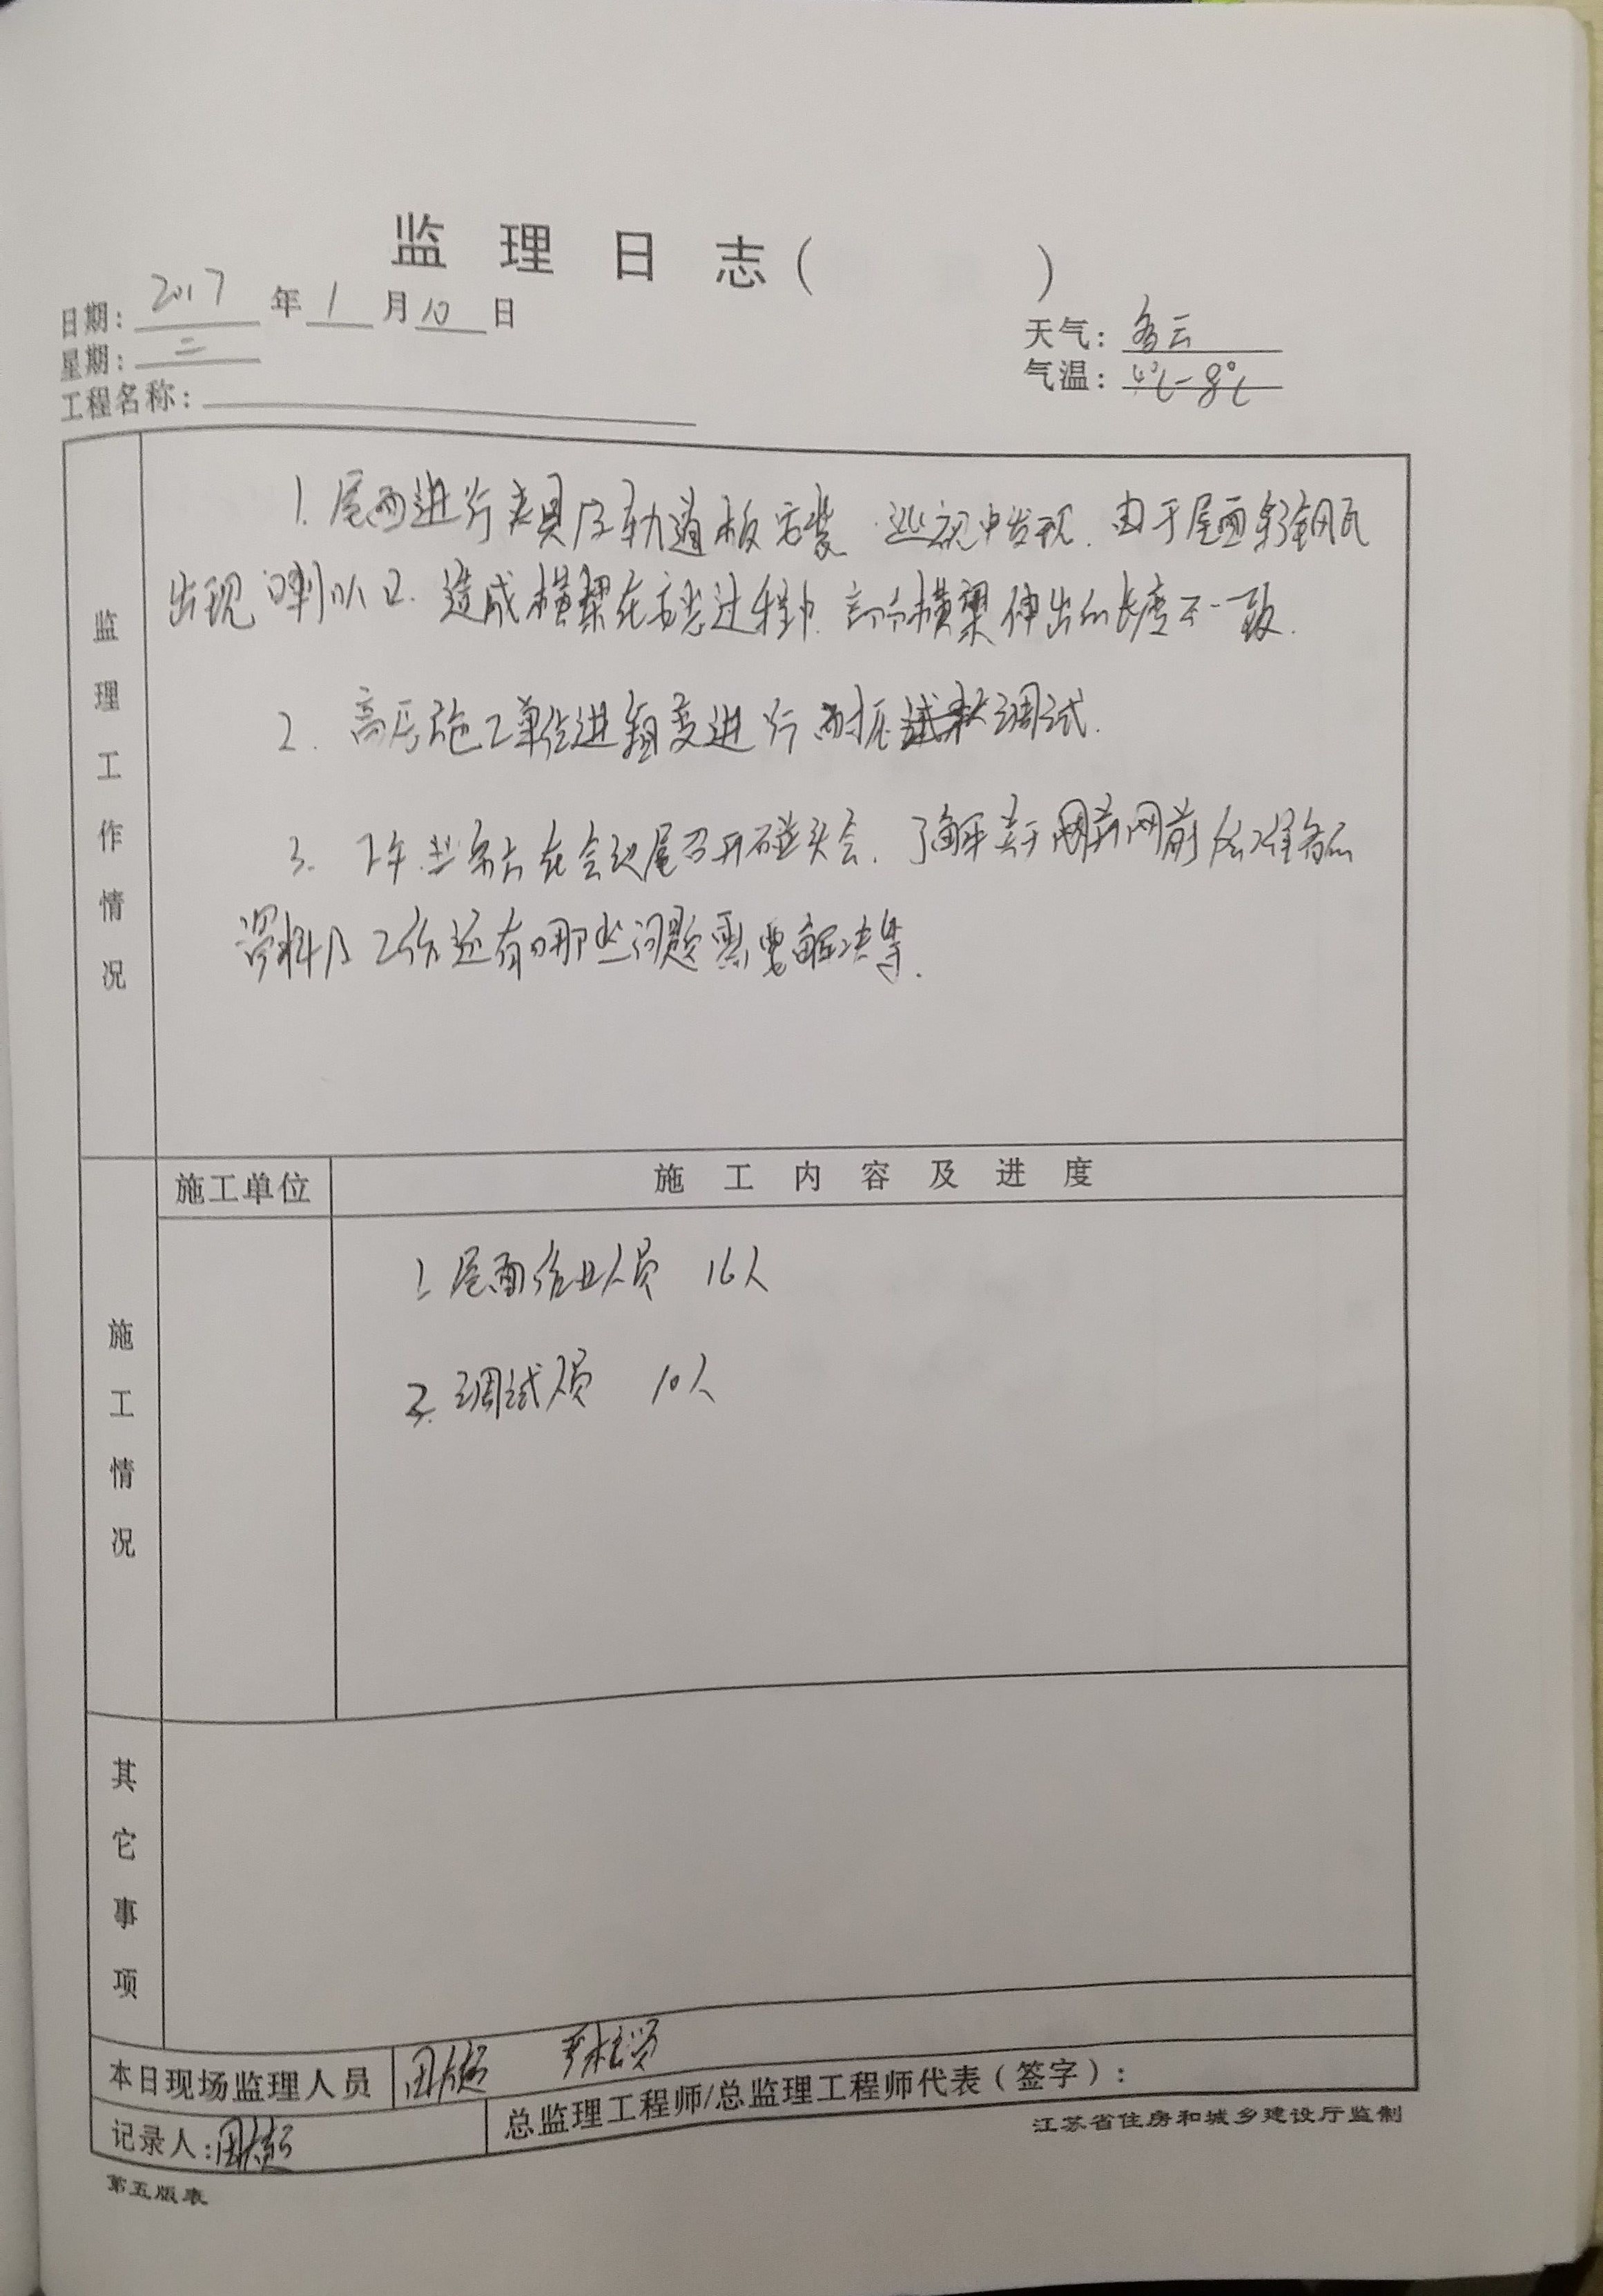 监理日志( )
日期: 2017 年 1 月 10 日
天气: 多云
星期: 二
气温: 4℃-8℃
工程名称:
监理工作情况
1. 屋面进行夹具及轨道板安装. 巡视中发现. 由于屋面彩钢瓦
出现喇叭口. 造成横梁在安装过程中. 部分横梁伸出的长度不一致.
2. 高压施工单位进 进行耐压 调试.
3. 下午 在会议室召开碰头会. 了解关于 网前 准备的
资料及工作还有哪些问题需要解决等.
施工情况
施工单位
施工内容及进度
1. 屋面作业人员 16人
2. 调试人员 10人
其它事项
本日现场监理人员
记录人:
总监理工程师/总监理工程师代表(签字):
江苏省住房和城乡建设厅监制
第五版表